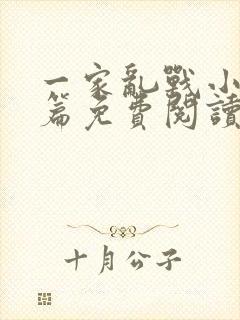 一家亂戰小
篇免費閱讀
十月公子